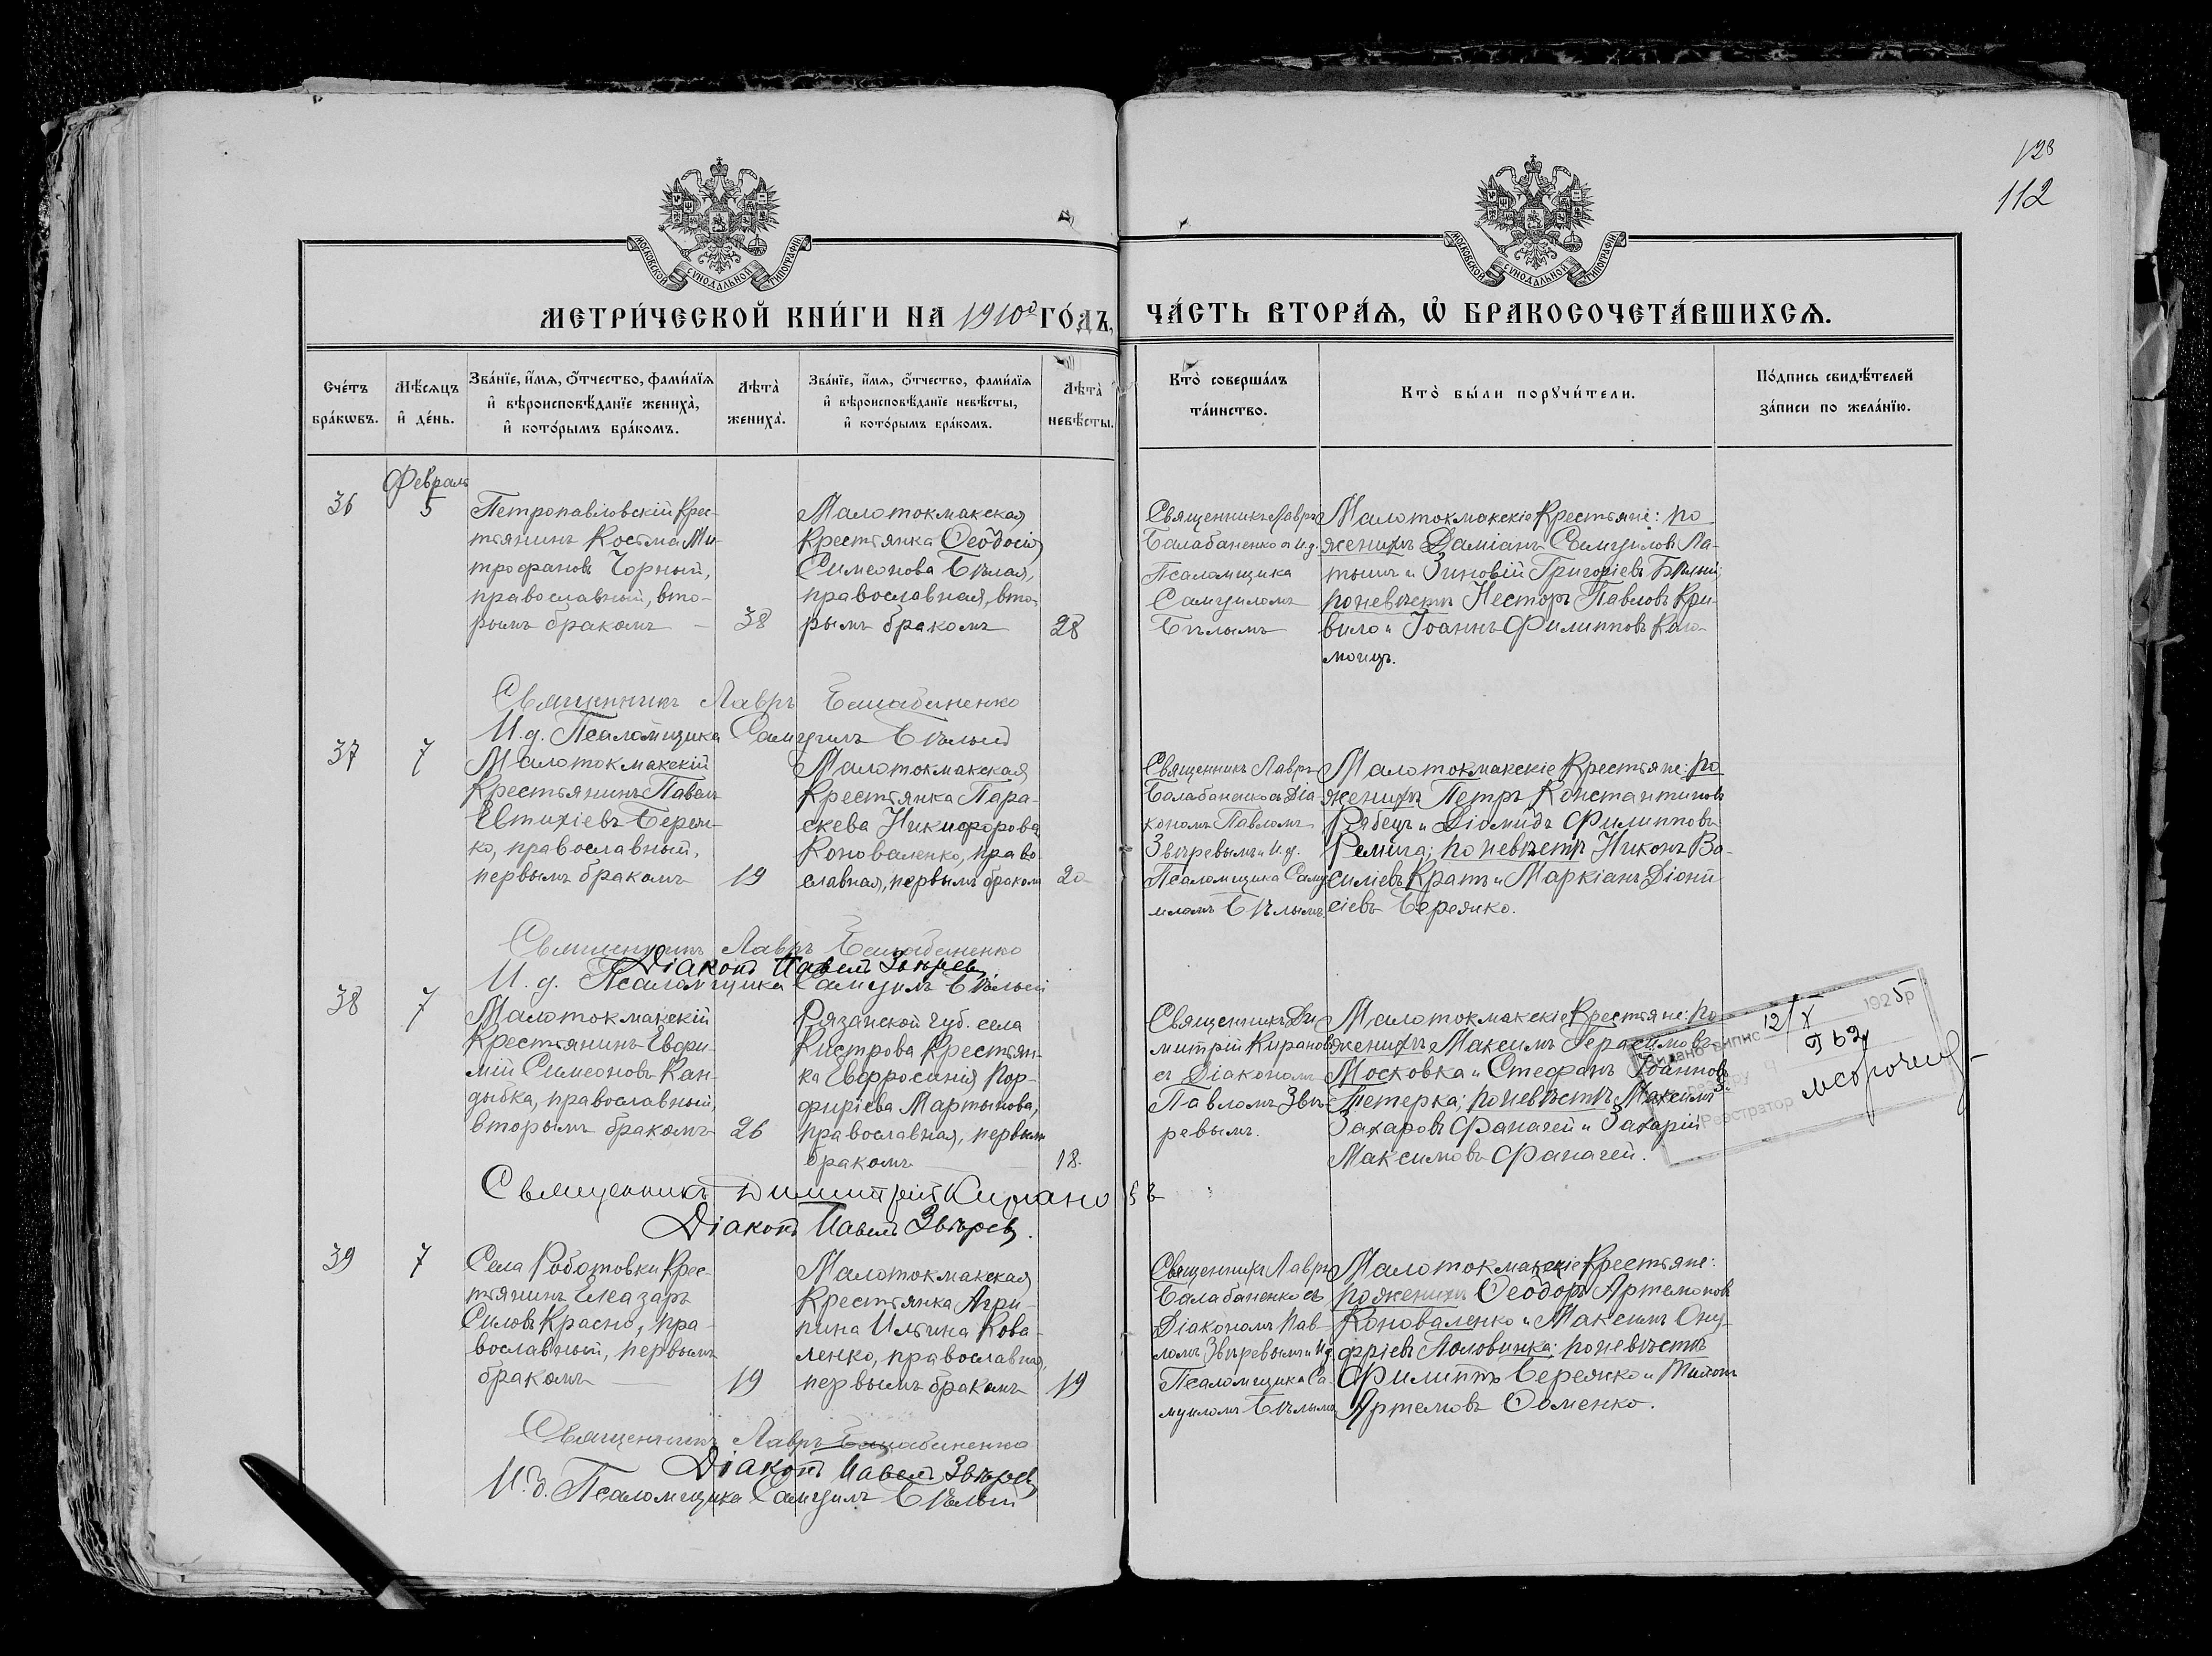 128
112
МОСКОВСКОЙ СѴНОДАЛЬНОЙ ТИПОГРАФІИ
МОСКОВСКОЙ СѴНОДАЛЬНОЙ ТИПОГРАФІИ
МЕТРИ́ЧЕСКОЙ КНИ́ГИ НА 1910й ГО́ДЪ,
ЧА́СТЬ ВТОРА́Ѧ, Ѽ БРАКОСОЧЕТА́ВШИХСѦ.
Сче́тъ
бра́кѡвъ.
Мѣ́сѧцъ
и҆ де́нь.
Зва́нїе, и҆́мѧ, ѻ҆́тчество, фами́лїѧ
и҆ вѣроисповѣ́данїе жениха̀,
и҆ кото́рымъ бра́комъ.
Лѣта̀
жениха̀.
Зва́нїе, и҆́мѧ, ѻ҆́тчество, фами́лїѧ
и҆ вѣроисповѣ́данїе невѣ́сты,
и҆ кото́рымъ бра́комъ.
Лѣта̀
невѣ́сты.
Кто̀ соверша́лъ
та́инство.
Кто̀ бы́ли порꙋчи́тели.
По́дпись свидѣ́телей
за́писи по жела́нїю.
Февраль
36
5
Петропавловскій Крес-
тянинъ Косма Ми-
трофановъ Чорный,
православный, вто-
рымъ бракомъ
38
Малотокмакская
Крестянка Ѳеодосія
Симеонова Бѣлая,
православная, вто-
рымъ бракомъ
28
Священникъ Лавръ
Балабаненко и И.д.
Псаломщика
Самуиломъ
Бѣлымъ
Малотокмакскіе Крестяне: по
женихѣ Даміанъ Самуиловъ Ла-
тышъ и Зиновій Григоріевъ Бѣлый;
по невѣстѣ Несторъ Павловъ Кри-
вило и Іоаннъ Филипповъ Коло-
моицъ.
Священникъ Лавръ Балабаненко
И.д. Псаломщика Самуилъ Бѣлый
37
7
Малотокмакскій
Крестянинъ Павелъ
Евтихіевъ Береж-
ко, православный,
первымъ бракомъ
19
Малотокмакская
Крестянка Пара-
скева Никифорова
Коноваленко, право-
славная, первымъ бракомъ
20
Священникъ Лавръ
Балабаненко съ Діа-
кономъ Павломъ
Звѣревымъ и И.д.
Псаломщика Саму-
иломъ Бѣлымъ
Малотокмакскіе Крестяне: по
женихѣ Петръ Константиновъ
Рябецъ и Діомидъ Филипповъ
Ремыга; по невѣстѣ Никонъ Ва-
силіевъ Кратъ и Маркіанъ Діони-
сіевъ Бережко.
Священникъ Лавръ Балабаненко
Діаконъ Павелъ Звѣревъ
И.д. Псаломщика Самуилъ Бѣлый
38
7
Малотокмакскій
Крестянинъ Евфи-
мій Симеоновъ Кан-
дыбка, православный,
вторымъ бракомъ
26
Рязанской губ. села
Кистрова Крестян-
ка Евфросинія Пор-
фиріева Мартынова,
православная, первымъ
бракомъ
18.
Священникъ Ди-
митрій Кирановъ
съ Діакономъ
Павломъ Звѣ-
ревымъ.
Малотокмакскіе Крестяне: по
женихѣ Максимъ Герасимовъ
Московка и Стефанъ Іоанновъ
Тетерка; по невѣстѣ Максимъ
Захаровъ Фанагей и Захарій
Максимовъ Фанагей.
Видано випис 12/X 1925р
Ч 962
Реєстратор
Священникъ Димитрій Кирановъ
Діаконъ Павелъ Звѣревъ.
39
7
Села Роботовки Крес-
тянинъ Елеазаръ
Силовъ Красно, пра-
вославный, первымъ
бракомъ
19
Малотокмакская
Крестянка Агри-
пина Ильина Кова-
ленко, православная,
первымъ бракомъ
19
Священникъ Лавръ
Балабаненко съ
Діакономъ Пав-
ломъ Звѣревымъ и И.д.
Псаломщика Са-
муиломъ Бѣлымъ
Малотокмакскіе Крестяне:
по женихѣ Ѳеодоръ Артемоновъ
Коноваленко и Максимъ Ону-
фріевъ Половинка; по невѣстѣ
Филиппъ Бережко и
Артемовъ Фоменко.
Священникъ Лавръ Балабаненко
Діаконъ Павелъ Звѣревъ
И.д. Псаломщика Самуилъ Бѣлый